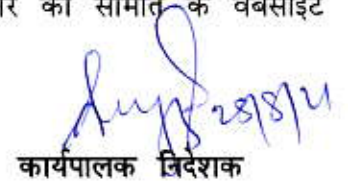 की समिति के वेबसाइट
28/8/21
कार्यपालक निदेशक